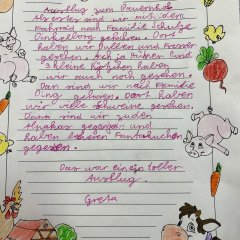 Ausflug zum Bauernhof
Als erstes sind wir mit dem
Fahrrad nach Familie Schulze
gefahren. Dort
haben wir Bullen und Fresser
gesehen. Ach ja Hühner und
3 kleine Kätzchen haben
wir auch noch gesehen.
Dan sind wir nach Familie
Ding gefahren dort haben
wir viele Schweine gesehen.
Dann sind wir zu den
Alpakas gegangen und
haben leckeren
gegessen.
Das war ein toller
Ausflug.
Greta